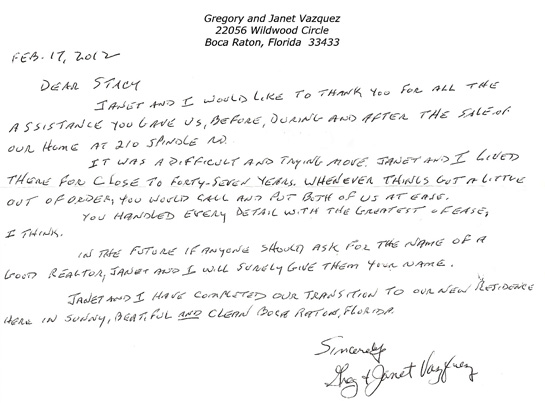 Gregory and Janet Vazquez
22056 Wildwood Circle
Boca Raton, Florida 33433
FEB. 17, 2012
DEAR STACY
JANET AND I WOULD LIKE TO THANK YOU FOR ALL THE
ASSISTANCE YOU GAVE US, BEFORE, DURING AND AFTER THE SALE OF
OUR HOME AT 210 SPINDLE RD.
IT WAS A DIFFICULT AND TRYING MOVE. JANET AND I LIVED
THERE FOR CLOSE TO FORTY-SEVEN YEARS. WHENEVER THINGS GOT A LITTLE
OUT OF ORDER, YOU WOULD CALL AND PUT BOTH OF US AT EASE.
YOU HANDLED EVERY DETAIL WITH THE GREATEST OF EASE,
I THINK.
IN THE FUTURE IF ANYONE SHOULD ASK FOR THE NAME OF A
GOOD REALTOR, JANET AND I WILL SURELY GIVE THEM YOUR NAME.
JANET AND I HAVE COMPLETED OUR TRANSITION TO OUR NEW RESIDENCE
HERE IN SUNNY, BEATIFUL AND CLEAN BOCA RATON, FLORIDA.
Sincerely
Greg & Janet Vazquez